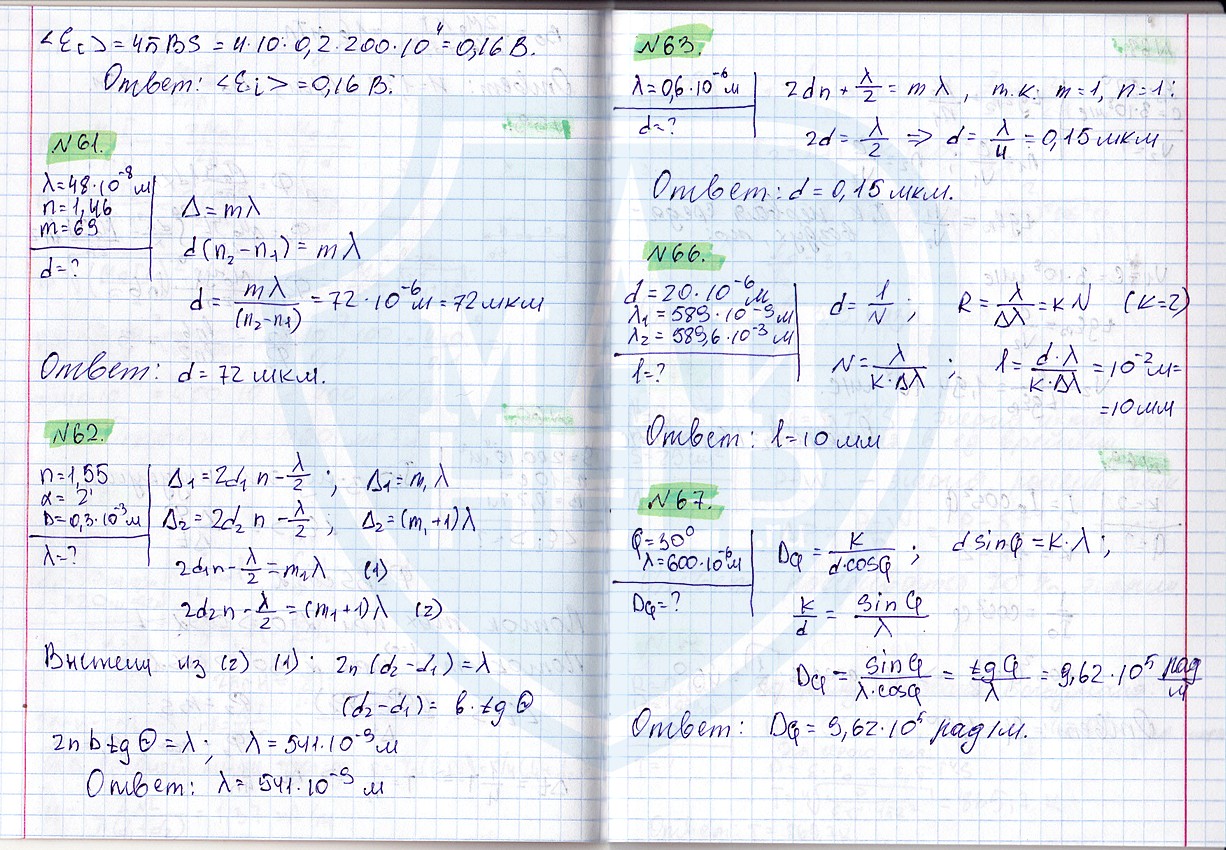 <Ɛi> = 4πBS = 4·10·0,2·200·10⁻⁴ = 0,16 В.
Ответ: <Ɛi> = 0,16 В.
N61.
λ=48·10⁻⁸ м
n=1,46
m=69
d=?
Δ = mλ
d(n₂-n₁) = mλ
d = mλ/(n₂-n₁) = 72·10⁻⁶ м = 72 мкм
Ответ: d = 72 мкм.
N62.
n=1,55
α= 2'
b=0,3·10⁻³ м
λ=?
Δ₁ = 2d₁ n - λ/2 ; Δ₁ = m₁ λ
Δ₂ = 2d₂ n - λ/2 ; Δ₂ = (m₁+1)λ
2d₁n - λ/2 = m₁λ (1)
2d₂n - λ/2 = (m₁+1)λ (2)
из (2) (1): 2n (d₂-d₁) = λ
(d₂-d₁) = b·tg Θ
2n b tg Θ = λ; λ = 541·10⁻⁹ м
Ответ: λ = 541·10⁻⁹ м
N63.
λ=0,6·10⁻⁶ м
d=?
2dn + λ/2 = mλ, т.к. m=1, n=1:
2d = λ/2 ⇒ d = λ/4 = 0,15 мкм
Ответ: d = 0,15 мкм.
N66.
d = 20·10⁻⁶ м
λ₁ = 589·10⁻⁹ м
λ₂ = 589,6·10⁻⁹ м
l=?
d = l/N ; R = λ/Δλ = KN (K=2)
N = λ/(K·Δλ) ; l = d·λ/(K·Δλ) = 10⁻² м =
= 10 мм
Ответ: l = 10 мм
N67.
φ=30⁰
λ=600·10⁻⁶ м
Dφ=?
Dφ = K/(d·cosφ) ; d sinφ = K·λ ;
K/d = sin φ/λ
Dφ = sinφ/(λ·cosφ) = tg φ/λ = 9,62·10⁵ рад/м
Ответ: Dφ = 9,62·10⁵ рад/м.